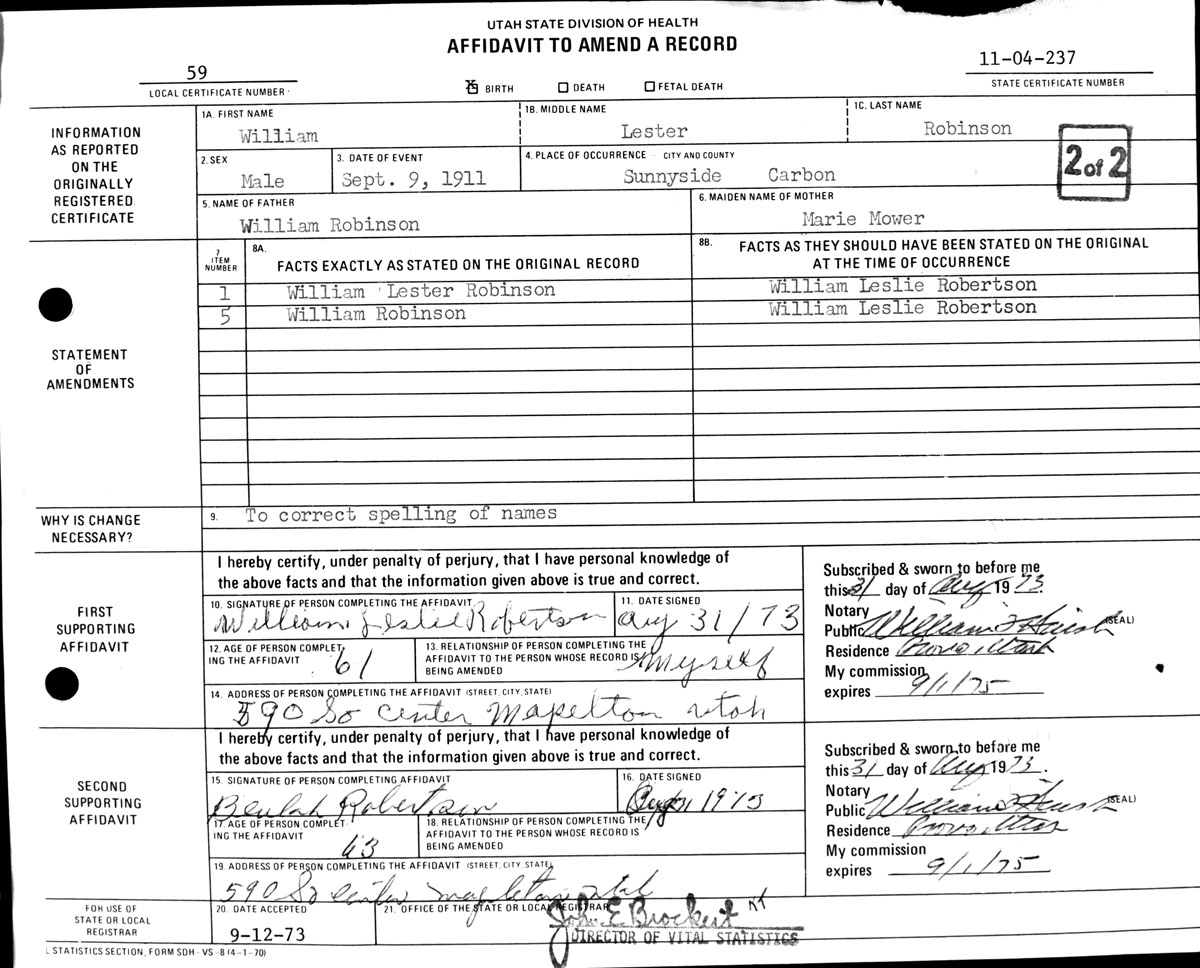 UTAH STATE DIVISION OF HEALTH
AFFIDAVIT TO AMEND A RECORD
59
LOCAL CERTIFICATE NUMBER
☒ BIRTH ☐ DEATH ☐ FETAL DEATH
11-04-237
STATE CERTIFICATE NUMBER
INFORMATION AS REPORTED ON THE ORIGINALLY REGISTERED CERTIFICATE
1A. FIRST NAME 1B. MIDDLE NAME 1C. LAST NAME
William Lester Robinson
2. SEX 3. DATE OF EVENT 4. PLACE OF OCCURRENCE CITY AND COUNTY
Male Sept. 9, 1911 Sunnyside Carbon
2 of 2
5. NAME OF FATHER 6. MAIDEN NAME OF MOTHER
William Robinson Marie Mower
STATEMENT OF AMENDMENTS
7 ITEM NUMBER
8A. FACTS EXACTLY AS STATED ON THE ORIGINAL RECORD
8B. FACTS AS THEY SHOULD HAVE BEEN STATED ON THE ORIGINAL AT THE TIME OF OCCURRENCE
1 William Lester Robinson William Leslie Robertson
5 William Robinson William Leslie Robertson
WHY IS CHANGE NECESSARY?
9. To correct spelling of names
FIRST SUPPORTING AFFIDAVIT
I hereby certify, under penalty of perjury, that I have personal knowledge of
the above facts and that the information given above is true and correct.
10. SIGNATURE OF PERSON COMPLETING THE AFFIDAVIT 11. DATE SIGNED
William Leslie Robertson Aug 31/73
12. AGE OF PERSON COMPLETING THE AFFIDAVIT 61
13. RELATIONSHIP OF PERSON COMPLETING THE AFFIDAVIT TO THE PERSON WHOSE RECORD IS BEING AMENDED Myself
14. ADDRESS OF PERSON COMPLETING THE AFFIDAVIT (STREET, CITY, STATE)
590 So center Mapelton utah
Subscribed & sworn to before me
this 31 day of Aug 1973.
Notary
Public William (SEAL)
Residence Provo, Utah
My commission
expires 9/1/75
SECOND SUPPORTING AFFIDAVIT
I hereby certify, under penalty of perjury, that I have personal knowledge of
the above facts and that the information given above is true and correct.
15. SIGNATURE OF PERSON COMPLETING AFFIDAVIT 16. DATE SIGNED
Beulah Robertson 1973
17. AGE OF PERSON COMPLETING THE AFFIDAVIT 63
18. RELATIONSHIP OF PERSON COMPLETING THE AFFIDAVIT TO THE PERSON WHOSE RECORD IS BEING AMENDED
19. ADDRESS OF PERSON COMPLETING THE AFFIDAVIT (STREET, CITY, STATE)
590 So center mapleton
Subscribed & sworn to before me
this 31 day of Aug 1973.
Notary
Public William (SEAL)
Residence Provo, Utah
My commission
expires 9/1/75
FOR USE OF STATE OR LOCAL REGISTRAR
20. DATE ACCEPTED 21. OFFICE OF THE STATE OR LOCAL REGISTRAR
9-12-73
John E Brockert
DIRECTOR OF VITAL STATISTICS
L STATISTICS SECTION, FORM SDH - VS - 8 (4-1-70)